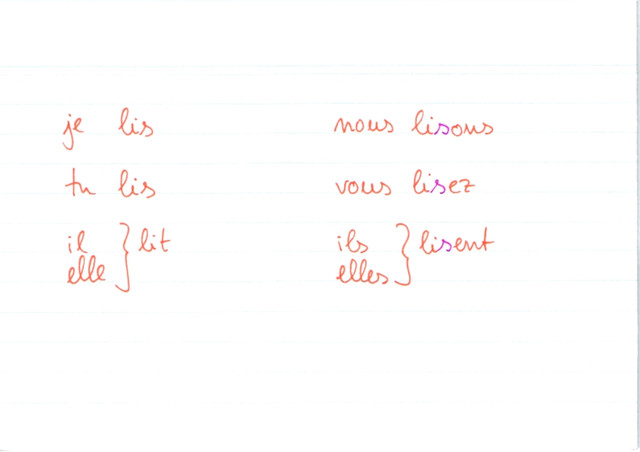 je lis nous lisons
tu lis vous lisez
il } lit ils } lisent
elle elles